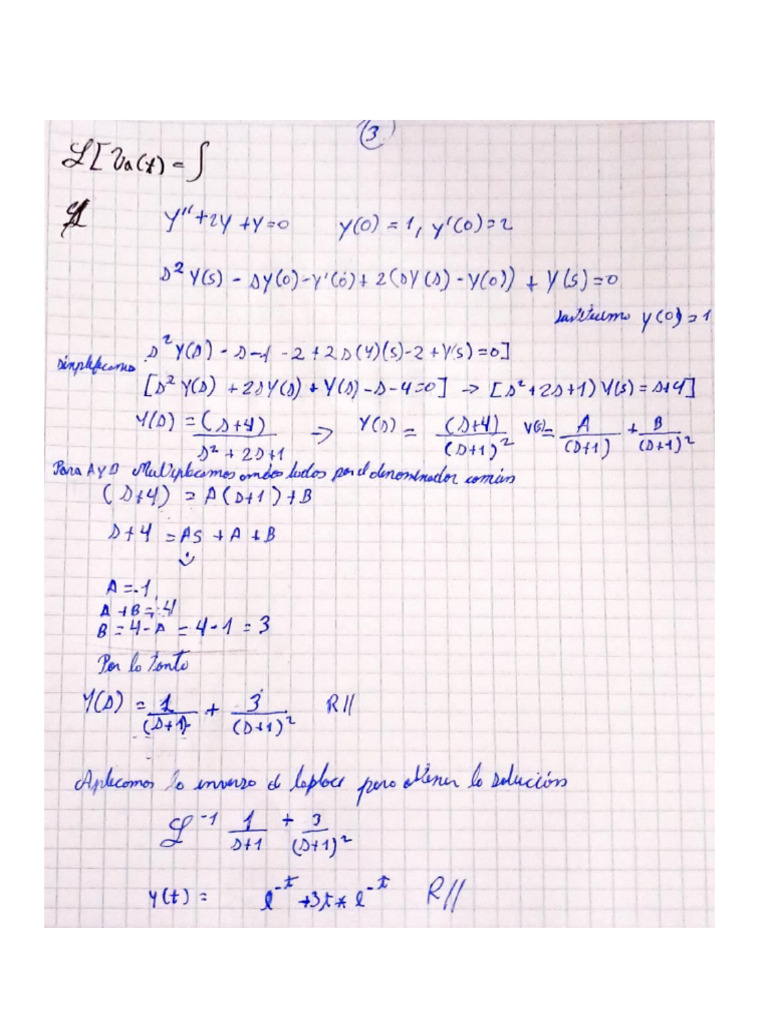 (3)
ℒ[Va(t) = ∫
Y'' + 2Y + Y = 0 Y(0) = 1, Y'(0) = 2
s² Y(s) - sY(0) - Y'(0) + 2(sY(s) - Y(0)) + Y(s) = 0
Y(0) = 1
s² Y(s) - s - 1 - 2 + 2s(Y)(s) - 2 + Y(s) = 0]
simplificamos
[s² Y(s) + 2sY(s) + Y(s) - s - 4 = 0] → [s² + 2s + 1) Y(s) = s + 4]
Y(s) = (s+4) / s² + 2s + 1 → Y(s) = (s+4) / (s+1)² Y(s) = A / (s+1) + B / (s+1)²
Para A y B Multiplicamos ambos lados por el denominador común
(s+4) = A(s+1) + B
s+4 = As + A + B
A = 1
A + B = 4
B = 4 - A = 4 - 1 = 3
Por lo tanto
Y(s) = 1 / (s+1) + 3 / (s+1)² R//
Aplicamos la inversa de laplace para obtener la solución
ℒ⁻¹ 1 / s+1 + 3 / (s+1)²
Y(t) = e^-t + 3t * e^-t R//